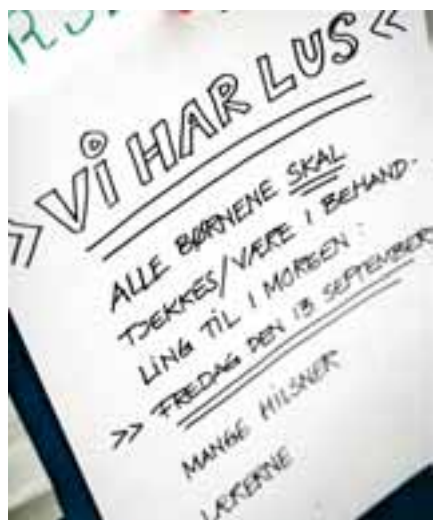 »VI HAR LUS«
ALLE BØRNENE SKAL
TJEKKES/VÆRE I BEHAND-
LING TIL I MORGEN:
>> FREDAG DEN 13 SEPTEMBER
MANGE HILSNER
LÆRERNE